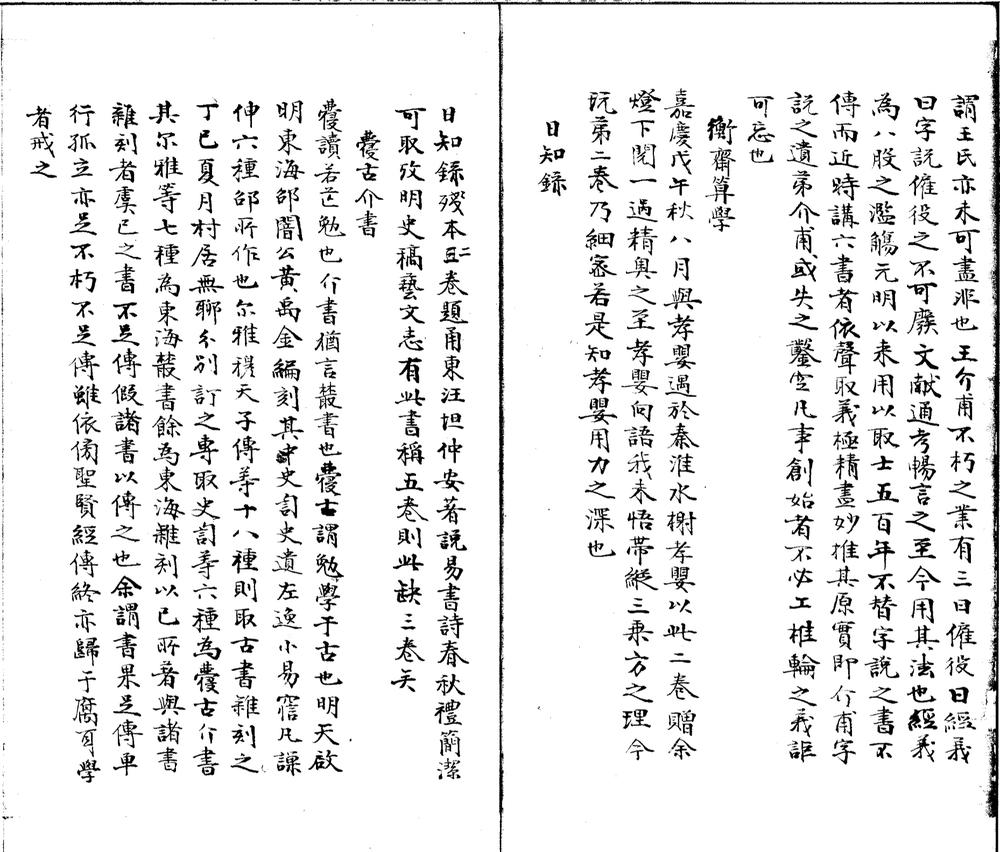 謂王氏亦未可盡非也王介甫不朽之業有三曰僱役曰經義
曰字說僱役之不可廢文献通考暢言之至今用其法也經義
為八股之濫觴元明以来用以取士五百年不替字說之書不
傳而近時講六書者依聲取義極精盡妙推其原實即介甫字
說之遺第介甫或失之鑿空凡事創始者不必工椎輪之義詎
可忘也
衡齋算學
嘉慶戊午秋八月與孝嬰遇於秦淮水榭孝嬰以此二卷贈余
燈下閱一過精奥之至孝嬰向語我未悟帶縱三乗方之理今
玩第二卷乃細審若是知孝嬰用力之深也
日知錄
日知錄殘本二卷題甬東汪坦仲安著說易書詩春秋禮簡潔
可取攷明史稿藝文志有此書稱五卷則此缺三卷矣
亹古介書
亹讀若芒勉也介書猶言叢書也亹古謂勉學于古也明天啟
明東海邵闇公黄禹金編刻其史訇史遺左逸小易窹凡謀
伸六種邵所作也尔雅穆天子傳等十八種則取古書雜刻之
丁巳夏月村居無聊分别訂之専取史訇等六種為亹古介書
其尔雅等七種為東海叢書餘為東海雜刻以已所著與諸書
雜刻者虞已之書不足傳假諸書以傳之也余謂書果足傳单
行孤立亦足不朽不足傳雖依傍聖賢經傳終亦歸于腐耳學
者戒之